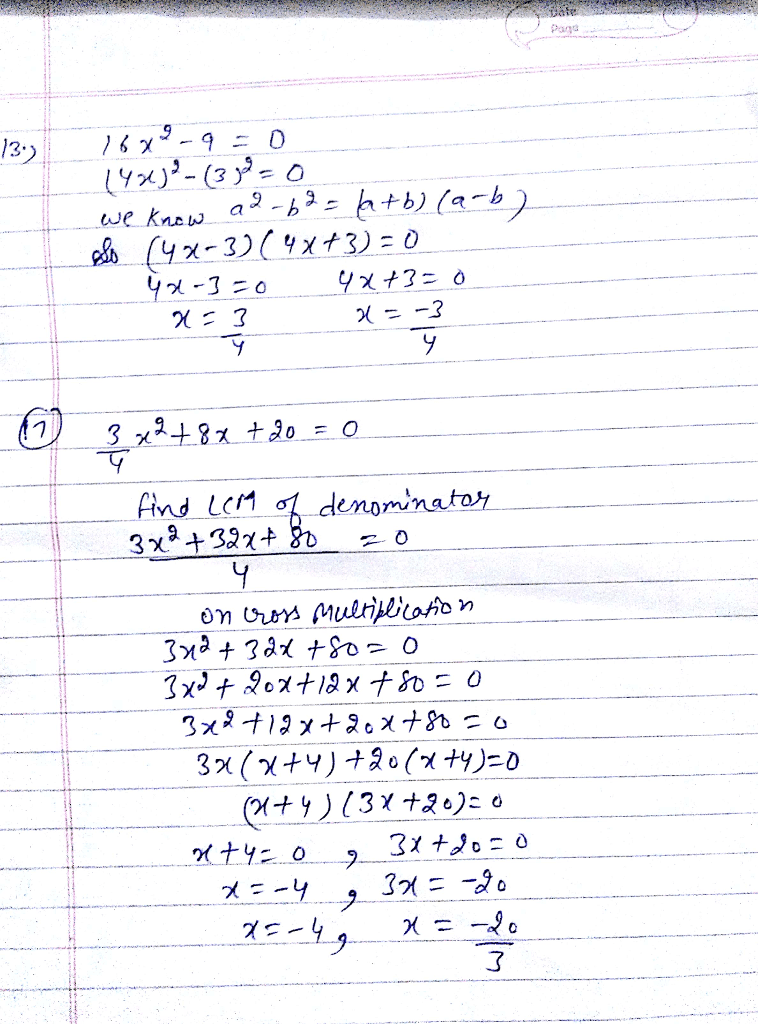 Date
Page
13.) 16x² - 9 = 0
(4x)² - (3)² = 0
we know a² - b² = (a+b) (a-b)
So (4x-3)(4x+3) = 0
4x-3 = 0 4x+3 = 0
x = 3/4 x = -3/4
17) 3/4 x² + 8x + 20 = 0
find LCM of denominator
(3x² + 32x + 80)/4 = 0
on cross Multiplication
3x² + 32x + 80 = 0
3x² + 20x + 12x + 80 = 0
3x² + 12x + 20x + 80 = 0
3x(x+4) + 20(x+4) = 0
(x+4)(3x+20) = 0
x+4 = 0 , 3x+20 = 0
x = -4 , 3x = -20
x = -4 , x = -20/3